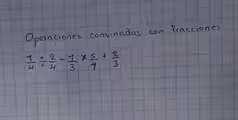 Operaciones convinadas con fracciones
9/4 ÷ 2/4 - 1/3 × 5/9 + 2/3